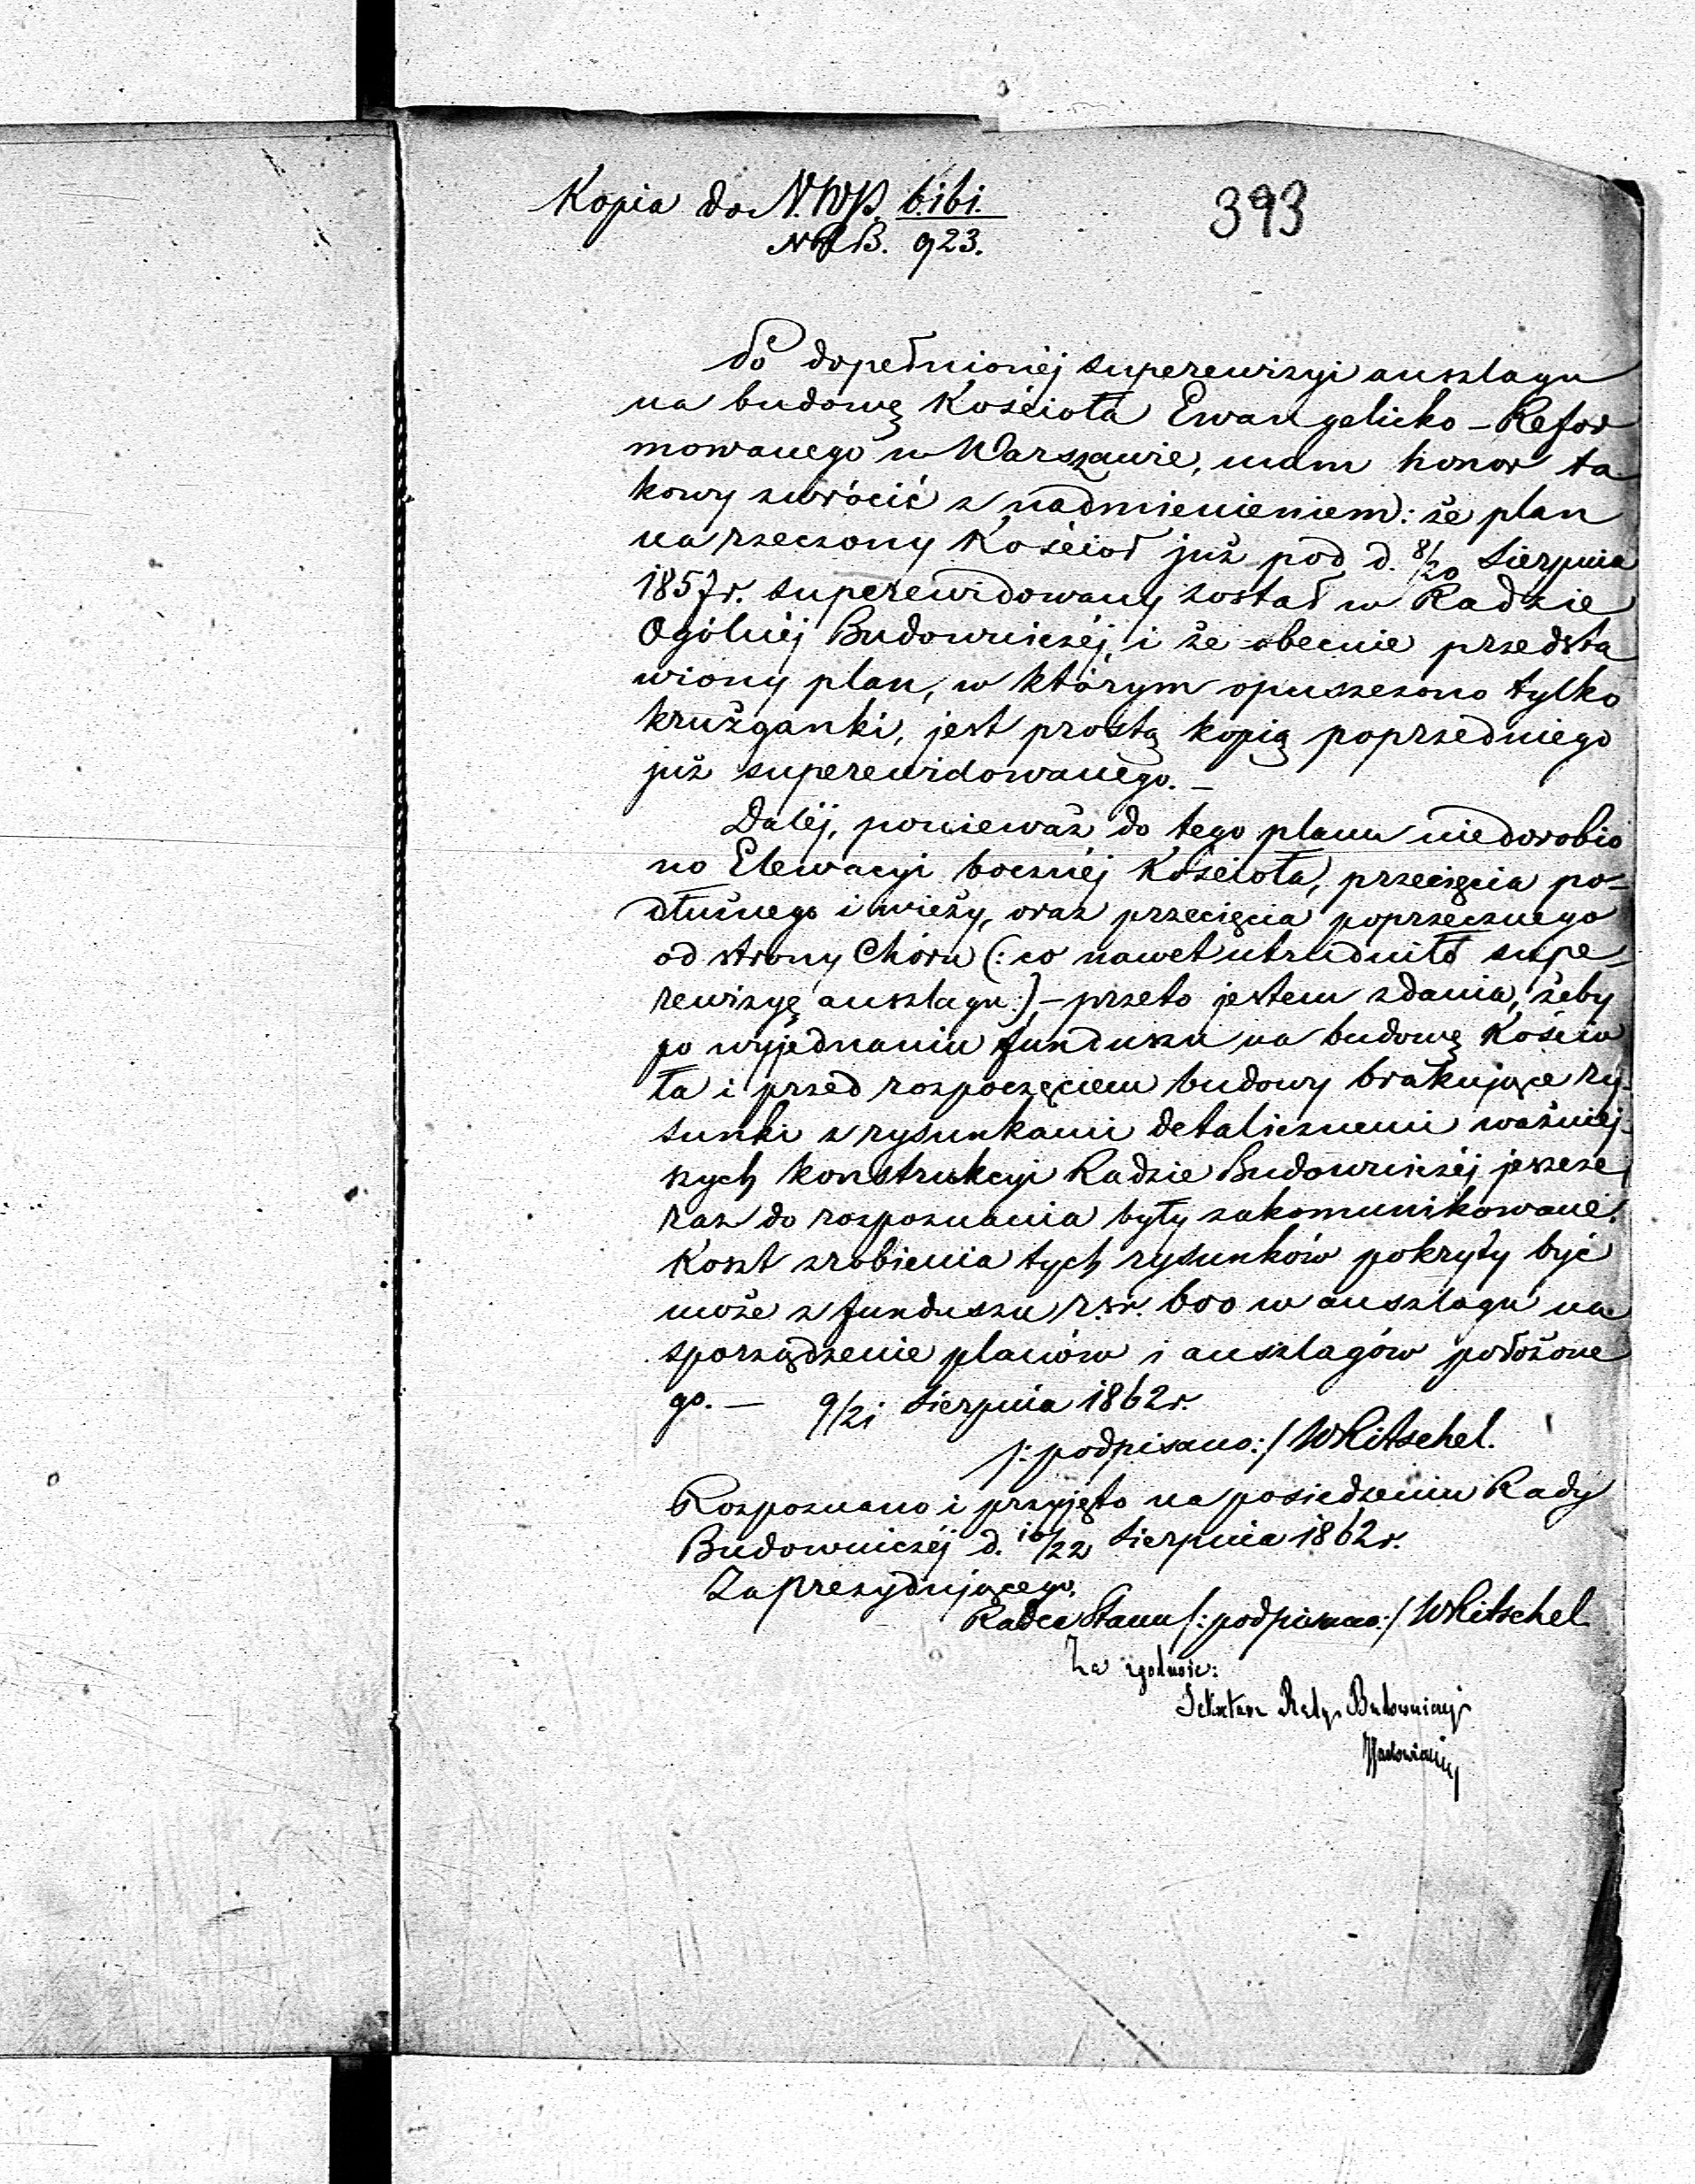 Kopia do N. WP. 6161.
N R B. 923.
393
Po dopełnionéj superewizyi anszlagu
na budowę Kościoła Ewangelicko-Refor
mowanego w Warszawie, mam honor ta
kowy zwrócić z nadmienieniem: że plan
na rzeczony Kościoł już pod d. 8/20 Sierpnia
1857 r. superewidowany został w Radzie
Ogólnéj Budowniczéj, i że obecnie przedsta
wiony plan, w którym opuszczono tylko
krużganki, jest prostą kopią poprzedniego
już superewidowanego. —
Daléj, ponieważ do tego planu niedorobio
no Elewacyi bocznéj Kościoła, przecięcia po-
dłużnego i wieży, oraz przecięcia poprzecznego
od strony Chóru (: co nawet utrudniło supe-
rewizyę anszlagu :) — przeto jestem zdania, żeby
po wyjednaniu funduszu na budowę Kościo
ła i przed rozpoczęciem budowy brakujące ry-
sunki z rysunkami detalicznemi ważniej-
szych konstrukcyi Radzie Budowniczéj jeszcze
raz do rozpoznania były zakomunikowane.
Koszt zrobienia tych rysunków pokryty być
może z funduszu r.sr. 600 w anszlagu na
sporządzenie planów i anszlagów położone
go. — 9/21 Sierpnia 1862 r.
/: podpisano :/ WRitschel.
Rozpoznano i przyjęto na posiedzeniu Rady
Budowniczéj d. 10/22 Sierpnia 1862 r.
Za Prezydującego,
Radca Stanu /: podpisano :/ WRitschel
Za zgodność:
Sekretarz Rady Budowniczéj